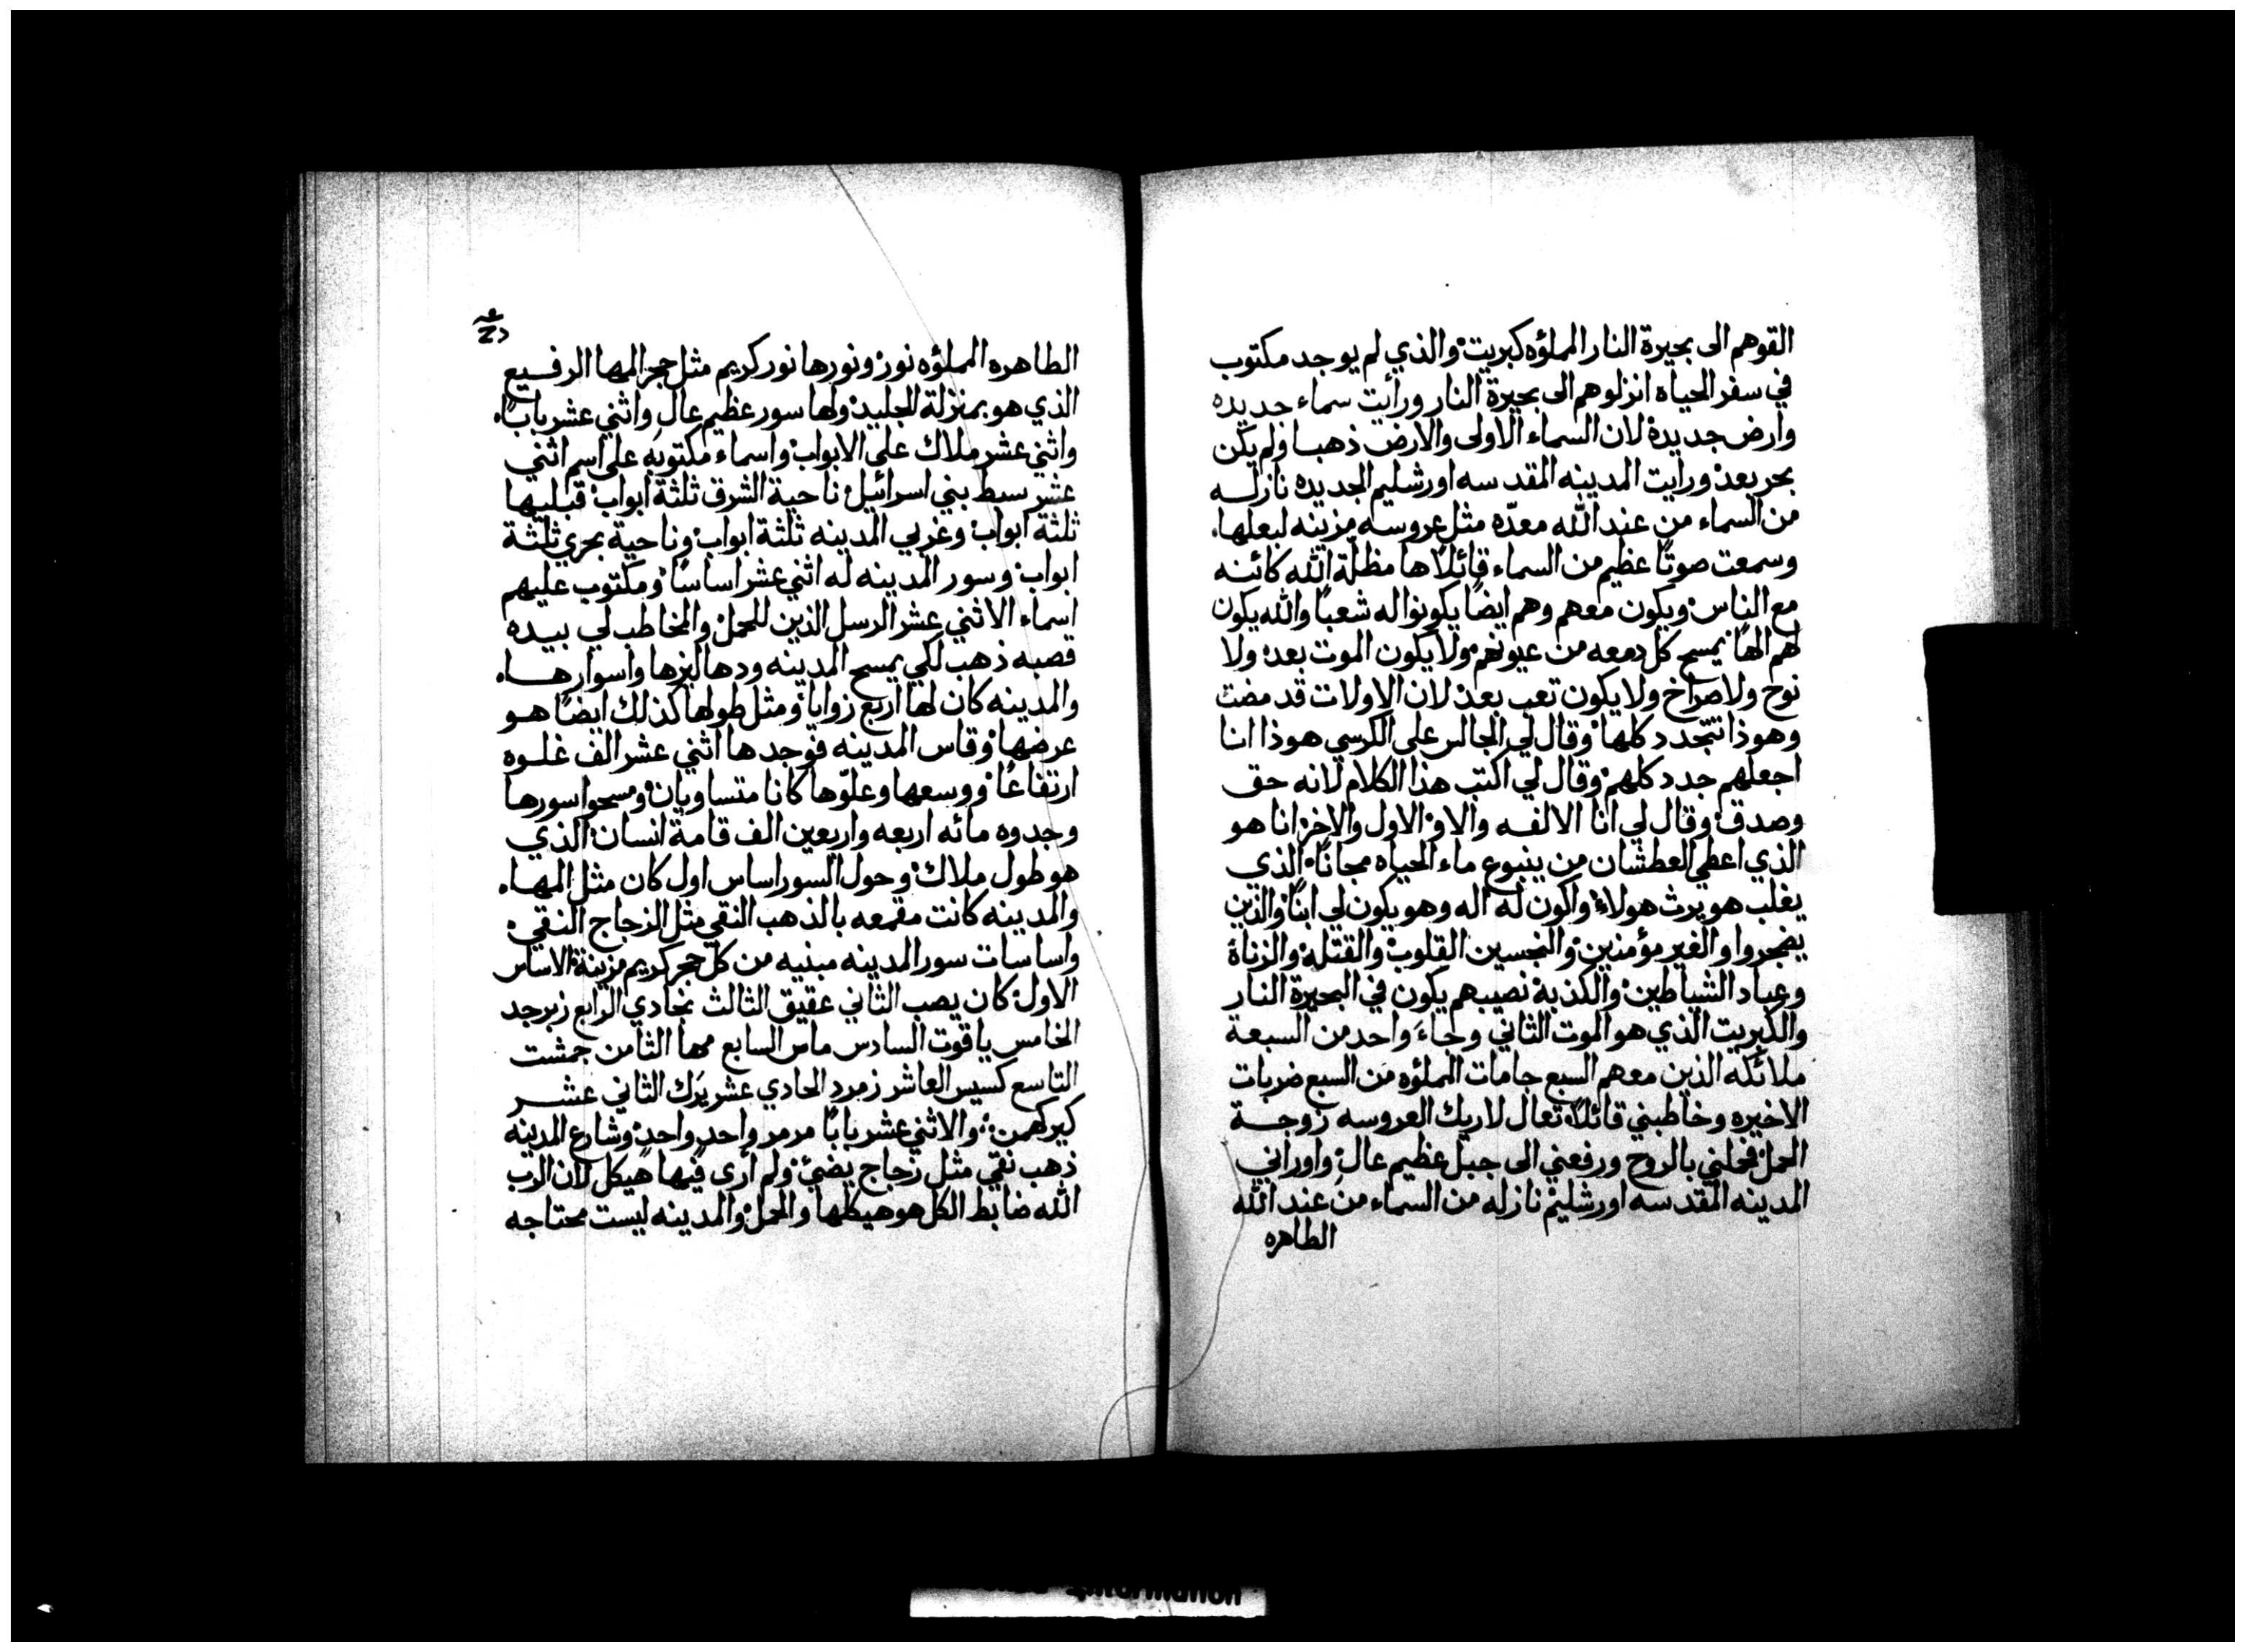 القوهم الى بحيرة النار المملؤه كبريت والذي لم يوجد مكتوب
في سفر الحياه انزلوهم الى بحيرة النار ورأيت سماء جديده
وارض جديدة لان السماء الاولى والارض ذهبا ولم يكن
بحر بعد ورايت المدينه المقدسه اورشليم الجديده نازلـــه
من السماء من عند الله معدّه مثل عروسه مزينه لبعلها.
وسمعت صوتًا عظيم من السماء قائلًا ها مظلّة الله كائنه
مع الناس ويكون معهم وهم ايضًا يكونوا له شعبًا والله يكون
لهم الهًا يمسح كل دمعه من عيونهم ولا يكون الموت بعد ولا
نوح ولا صراخ ولا يكون تعب بعد لان الاولات قد مضت
وهوذا نتجدد كلها وقال لي الجالس على الكرسي هوذا انا
اجعلهم جدد كلهم وقال لي اكتب هذا الكلام لانه حق
وصدق وقال لي انا الالفـه والاو الاول والاخر انا هو
الذي اعطي العطشان من ينبوع ماء الحياه مجانًا الذي
يغلب هو يرث هولاء واكون له اله وهو يكون لي ابنًا والذين
يضجروا والغير مؤمنين والنجسين القلوب والقتله والزناة
وعباد الشياطين والكذبة نصيبهم يكون في البحيرة النار
والكبريت الذي هو الموت الثاني وجاءَ واحد من السبعة
ملائكه الذين معهم السبع جامات المملؤه من السبع ضربات
الاخيره وخاطبني قائلًا تعال لاريك العروسه زوجـــة
الحمل فحملني بالروح ورفعني الى جبل عظيم عال واوراني
المدينه المقدسه اورشليم نازله من السماء من عند الله
الطاهره
الطاهره المملؤه نور ونورها نور كريم مثل حجر المها الرفــيع
الذي هو بمنزلة الجليد ولها سور عظيم عال واثني عشر بابًا.
واثني عشر ملاك على الابواب واسماء مكتوبه على اسم اثني
عشر سبط بني اسرائيل ناحية الشرق ثلثة ابواب قبليها
ثلثة ابواب وغربي المدينه ثلثة ابواب وناحية بحري ثلثة
ابواب وسور المدينه له اثني عشر اساسًا ومكتوب عليهم
اسماء الاثني عشر الرسل الذين للحمل والمخاطب لي بيـده
قصبه ذهب لكي يمسح المدينه ودهاليزها واسوارهــا.
والمدينه كان لها اربع زوايا ومثل طولها كذلك ايضًا هـو
عرضها وقاس المدينه فوجدها اثني عشر الف غلــوه
ارتفاعًا ووسعها وعلوّها كانا متساويان ومسحوا سورها
وجدوه مائه اربعه واربعين الف قامة انسان الذي
هو طول ملاك وحول السور اساس اول كان مثل المهـا.
والمدينه كانت مقمعه بالذهب النقي مثل الزجاج النقي
واساسات سور المدينه مبنيه من كل حجر كريم مزينة الاساس
الاول كان يصب الثاني عقيق الثالث نجادي الرابع زبرجد
الخامس ياقوت السادس ماس السابع مها الثامن جمشت
التاسع كسيس العاشر زمرد الحادي عشر يرك الثاني عشـــر
كبركهمن والاثني عشر بابًا مرمر واحد واحد وشارع المدينه
ذهب نقي مثل زجاج يضئ ولم أرى فيها هيكل لان الرب
الله ضابط الكل هو هيكلها والحمل والمدينه ليست محتاجه